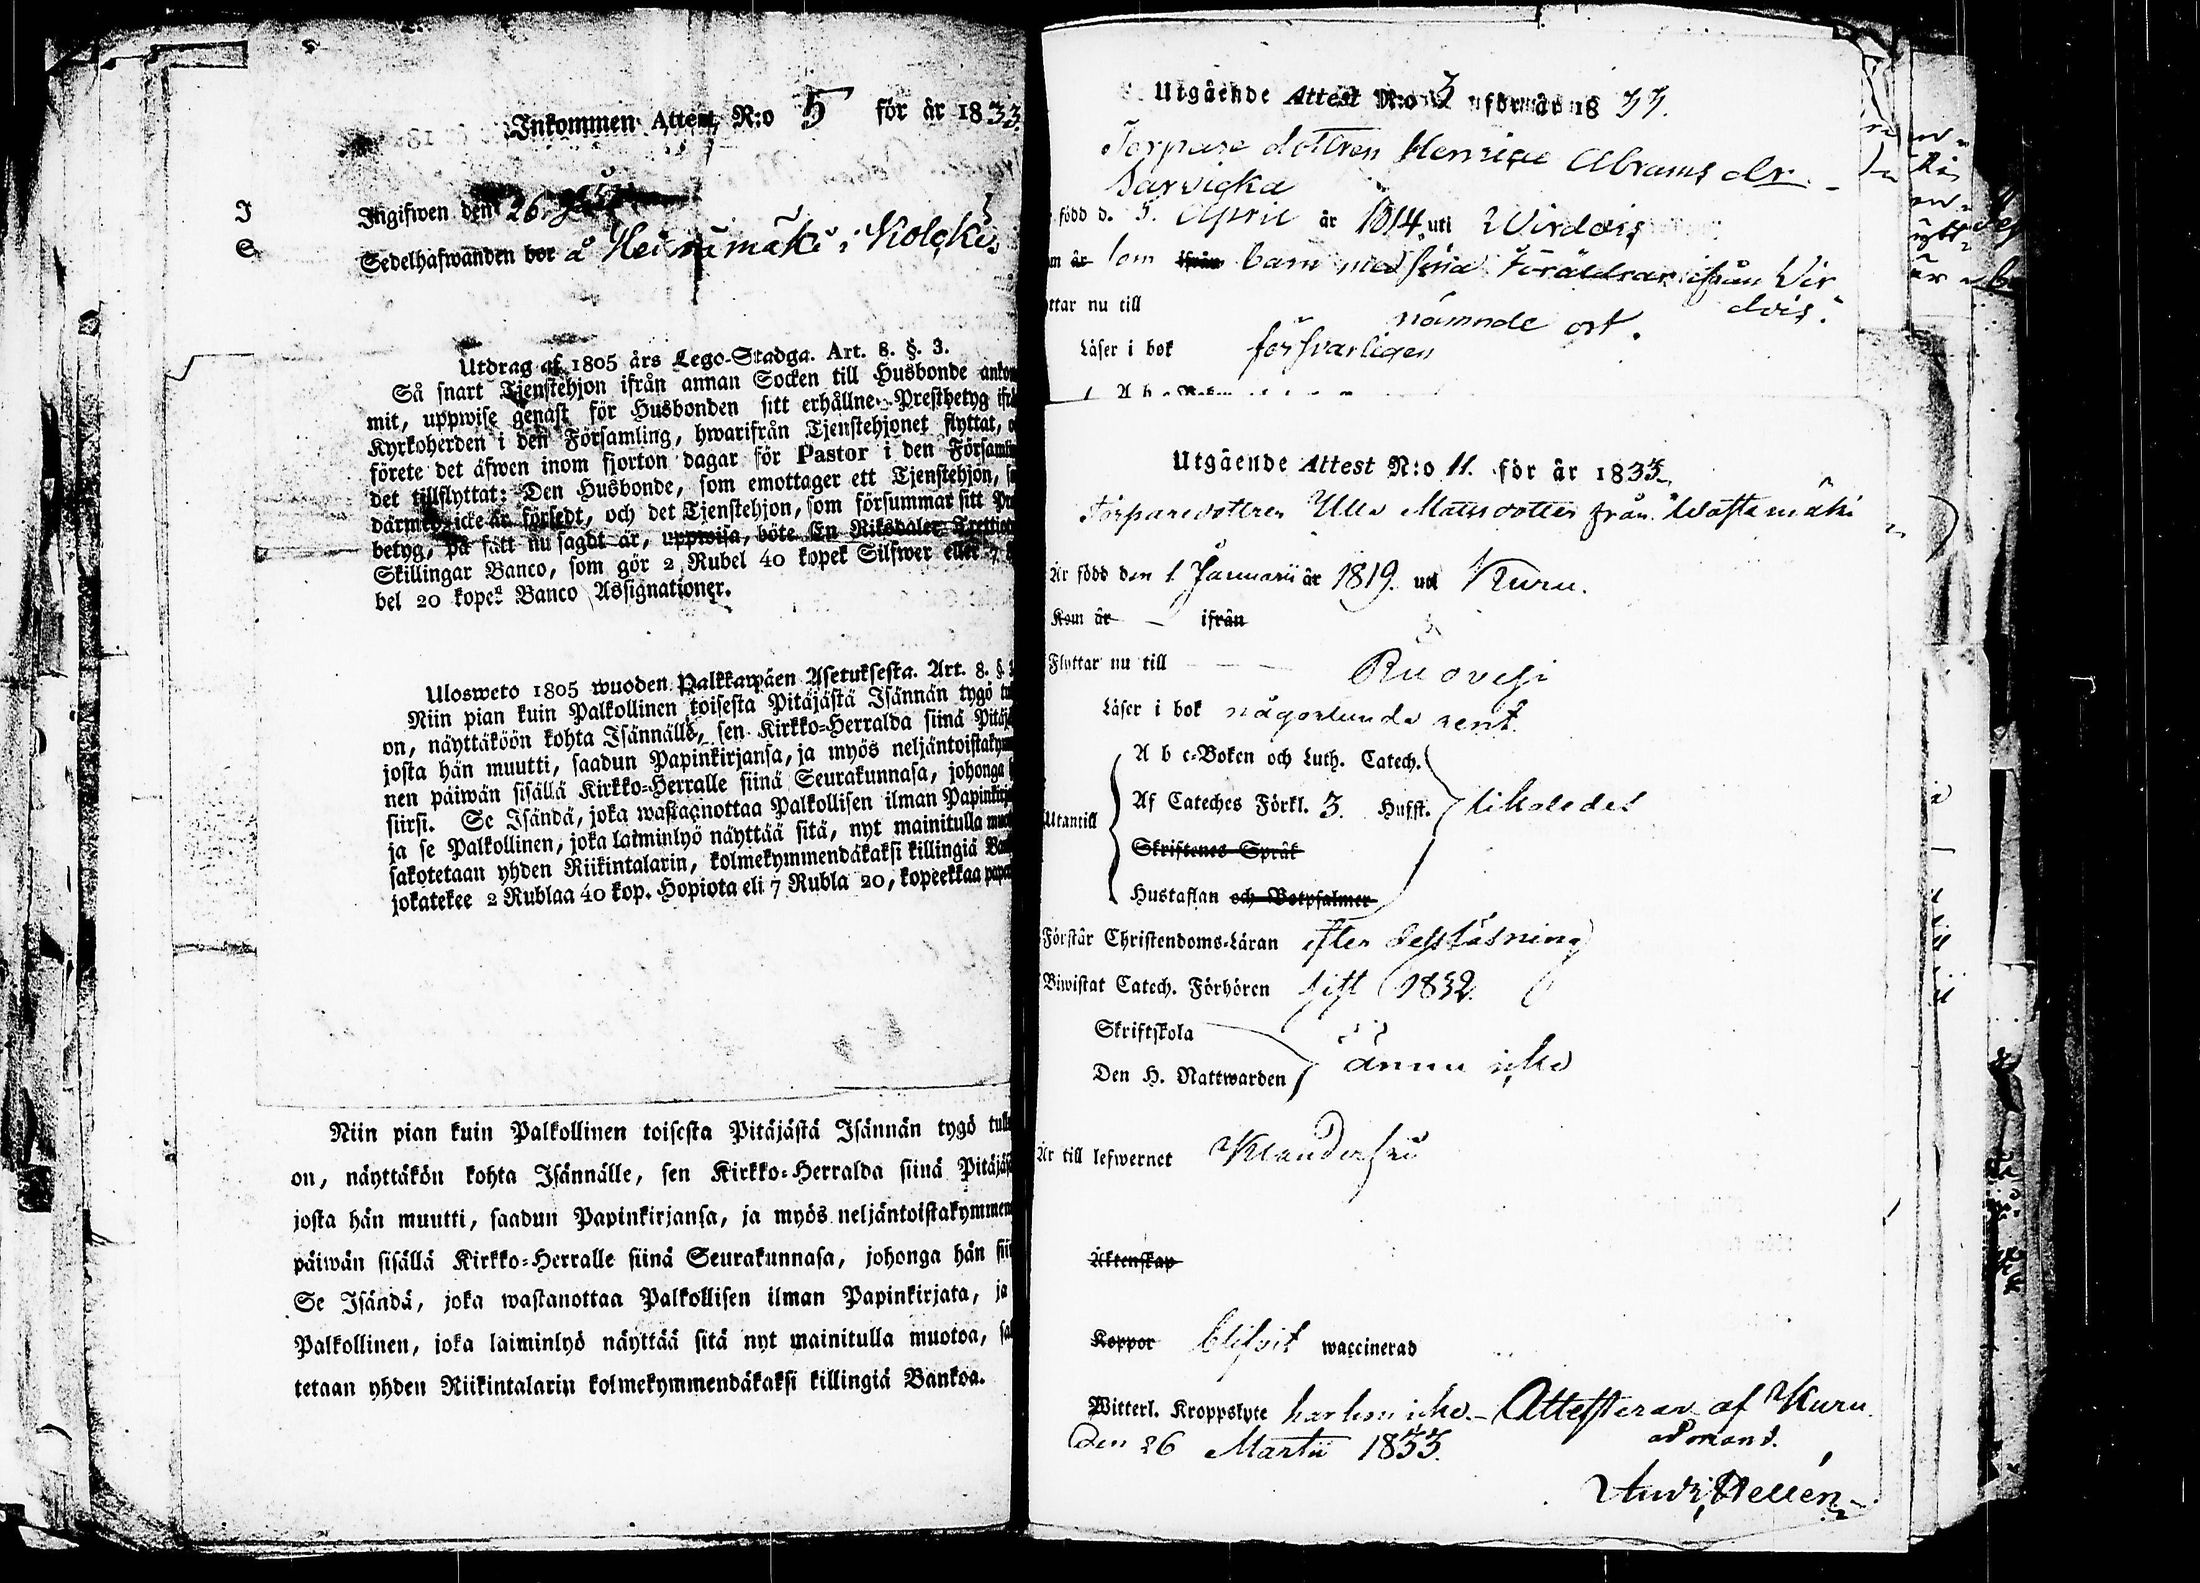 Inkommen Attest, N:o 5 för år 1833.
Ingifwen den 26
Sedelhafwanden bor å Heinämäki i Kolcki
I
S
Utdrag af 1805 års Lego-Stadga. Art. 8. §. 3.
Så snart Tjenstehjon ifrån annan Socken till Husbonde ankom
mit, uppwise genast för Husbonden sitt erhållne Prestbetyg ifrå
Kyrkoherden i den Församling, hwarifrån Tjenstehjonet flyttat, o
förete det äfwen inom fjorton dagar för Pastor i den Församlin
det tillflyttat: Den Husbonde, som emottager ett Tjenstehjon, s
därmed icke är försedt, och det Tjenstehjon, som försummar sitt Pre
betyg, på sätt nu sagdt är, uppwisa, böte En Riksdaler Trettio
Skillingar Banco, som gör 2 Rubel 40 kopek Silfwer eller 7
bel 20 kopek Banco Assignationer.
Ulosweto 1805 wuoden Palkkawäen Asetuksesta. Art. 8. §
Niin pian kuin Palkollinen toisesta Pitäjästä Isännän tygö tu
on, näyttäköön kohta Isännälle, sen Kirkko-Herralda siinä Pitäjä
josta hän muutti, saadun Papinkirjansa, ja myös neljäntoistakym
nen päiwän sisällä Kirkko-Herralle siinä Seurakunnasa, johonga
siirsi. Se Isändä, joka wastaanottaa Palkollisen ilman Papinkirj
ja se Palkollinen, joka laiminlyö näyttää sitä, nyt mainitulla muo
sakotetaan yhden Riikintalarin, kolmekymmendäkaksi killingiä Ban
jokatekee 2 Rublaa 40 kop. Hopiota eli 7 Rubla 20, kopeekkaa pape
Niin pian kuin Palkollinen toisesta Pitäjästä Isännän tygö tull
on, näyttäkön kohta Isännälle, sen Kirkko-Herralda siinä Pitäjäs
josta hän muutti, saadun Papinkirjansa, ja myös neljäntoistakymmen
päiwän sisällä Kirkko-Herralle siinä Seurakunnasa, johonga hän sii
Se Isändä, joka wastanottaa Palkollisen ilman Papinkirjata, ja
Palkollinen, joka laiminlyö näyttää sitä nyt mainitulla muotoa, sa
tetaan yhden Riikintalarin kolmekymmendäkaksi killingiä Bankoa.
Utgående Attest N:o 3 för år 1833.
Torpare dottren Henrica Abrams dr
Sarvicka
född d. 5. April år 1814 uti Wirdois
m år som ifrån barn med sina Föräldrar ifrån Vir
dois.
ttar nu till nämnde ort.
Läser i bok försvarligen
A b c-Boken
Utgående Attest N:o 11. för år 1833.
Torparedottren Ulla Mattsdotter från Wästemäki
Är född den 1. Januarii år 1819. uti Kuru.
Kom år – ifrån
Flyttar nu till Ruovesi
Läser i bok någorlunda rent.
A b c-Boken och Luth. Catech.
Utantill Af Cateches Förkl. 3. Hufst. likaledes
Skriftenes Språk
Hustaflan och Botpsalmer
Förstår Christendoms-Läran efter dess läsning
Biwistat Catech. Förhören sist 1832.
Skriftskola
Den H. Nattwarden ännu icke
Är till lefwernet Klanderfri
Äktenskap
Koppor blifvit waccinerad
Witterl. Kroppslyte har hon icke. – Attesterar af Kuru
den 26 Martii 1833. ad mand.
Hellén